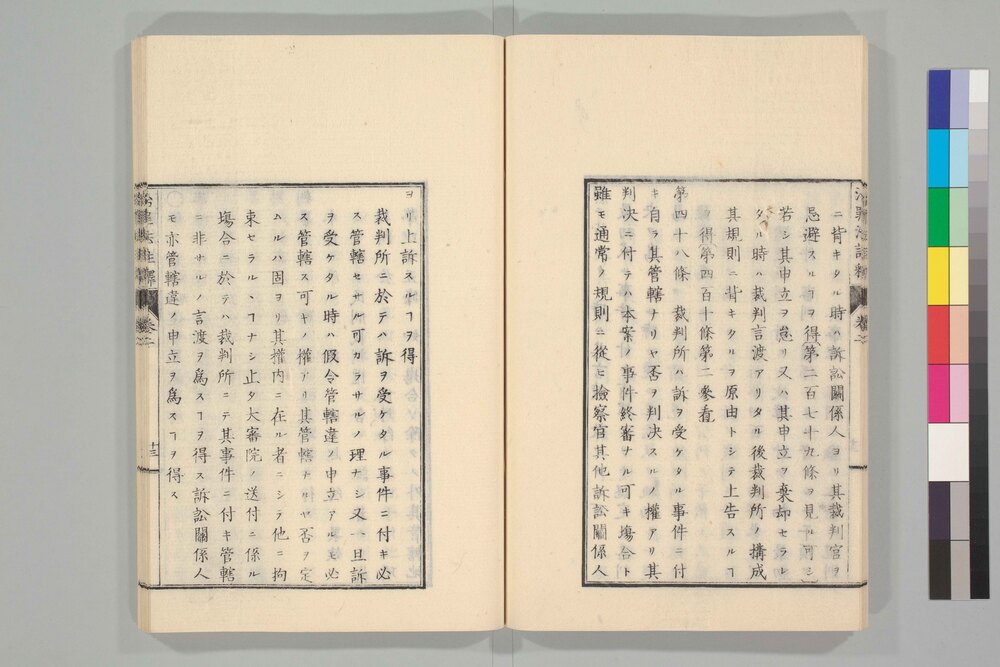 ニ背キタル時ハ訴訟關係人ヨリ其裁判官ヲ
忌避スルヿヲ得(第二百七十九條ヲ見ル可シ)
若シ其申立ヲ怠リ又ハ其申立ヲ棄却セラレ
タル時ハ裁判言渡アリタル後裁判所ノ搆成
其規則ニ背キタルヲ原由トシテ上告スルヿ
ヲ得(第四百十條第二參看)
第四十八條 裁判所ハ訴ヲ受ケタル事件ニ付
キ自ラ其管轄ナリヤ否ヲ判决スルノ權アリ其
判决ニ付テハ本案ノ事件終審ナル可キ塲合ト
雖モ通常ノ規則ニ從ヒ檢察官其他訴訟關係人
ヨリ上訴スルヿヲ得
裁判所ニ於テハ訴ヲ受ケタル事件ニ付キ必
ス管轄セサル可カラサルノ理ナシ又一旦訴
ヲ受ケタル時ハ假令管轄違ノ申立アルモ必
ス管轄ス可キノ權アリ其管轄ナルヤ否ヲ定
ムルハ固ヨリ其權内ニ在ル者ニシテ他ニ拘
束セラルヽヿナシ止タ大審院ノ送付ニ係ル
塲合ニ於テハ裁判所ニテ其事件ニ付キ管轄
ニ非サルノ言渡ヲ爲スヿヲ得ス訴訟關係人
モ亦管轄違ノ申立ヲ爲スヿヲ得ス
十三